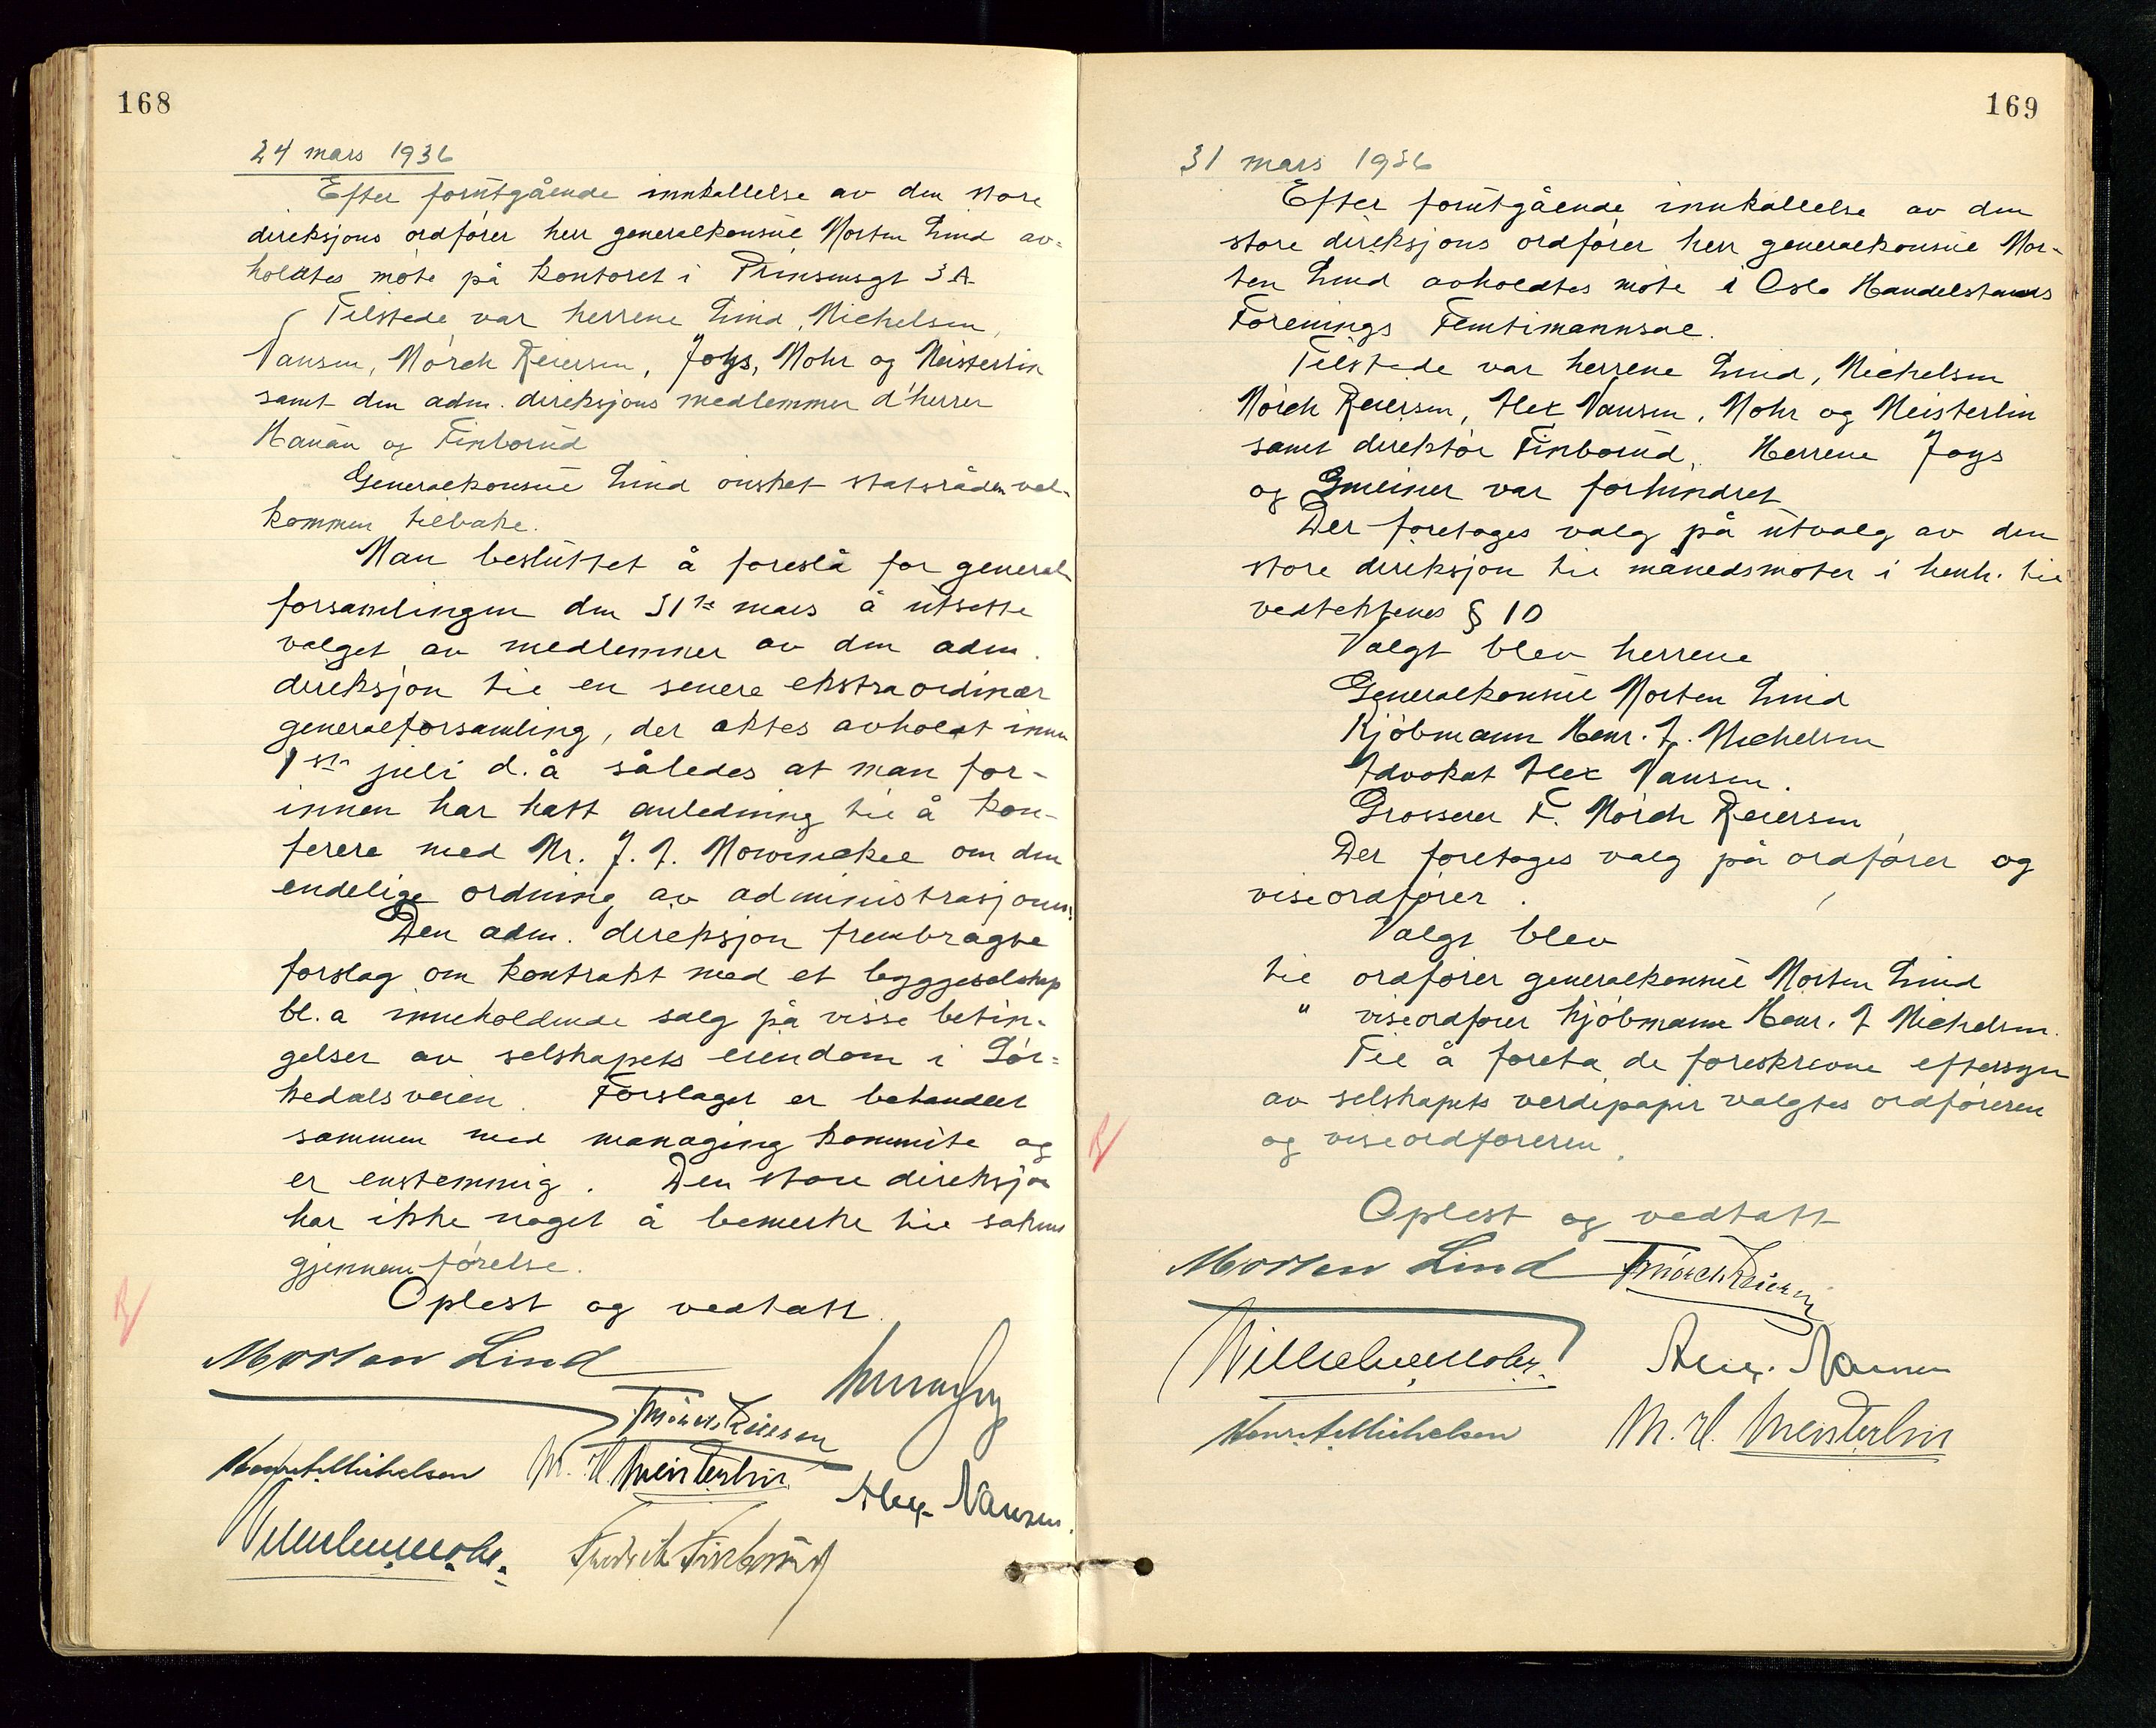 168
24 mars 1936
Efter forutgående innkallelse av den store
direksjons ordfører herr generalkonsul Morten Lind av=
holdtes møte på kontoret i Prinsensgt 3A
Tilstede var herrene Lind, Michelsen,
Nansen, Mørch Reiersen, Joys, Mohr og Meisterlin
samt den adm. direksjons medlemmer d'herrer
Hauan og Finborud
Generalkonsul Lind ønsket statsråden vel-
kommen tilbake.
Man besluttet å foreslå for general-
forsamlingen den 31te mars å utsette
valget av medlemmer av den adm.
direksjon til en senere ekstraordinær
generalforsamling, der aktes avholdt innen
1ste juli d.å således at man for-
innen har hatt anledning til å kon-
ferere med Mr. J. A. Mowinckel om den
endelige ordning av administrasjonen.
Den adm. direksjon frembragte
forslag om kontrakt med et byggeselskap
bl.a inneholdende salg på visse betin-
gelser av selskapets eiendom i Sør=
kedalsveien. Forslaget er behandlet
sammen med managing kommite og
er enstemmig. Den store direksjon
har ikke noget å bemerke til sakens
gjennemførelse.
Oplest og vedtatt.
Morten Lind
F Mörch Reiersen
Henr. A. Michelsen M. H. Meisterlin
Alex. Nansen.
Wilhelm Mohr. Fredrik Finborud
169
31 mars 1936
Efter forutgående innkallelse av den
store direksjons ordfører herr generalkonsul Mor-
ten Lind avholdtes møte i Oslo Handelstands
Forenings Femtimannsal.
Tilstede var herrene Lind, Michelsen
Mørch Reiersen, Alex Nansen, Mohr og Meisterlin
samt direktør Finborud. Herrene Joys
og Gmeiner var forhindret
Der foretages valg på utvalg av den
store direksjon til månedsmøter i henh. til
vedtektenes § 10
Valgt blev herrene
Generalkonsul Morten Lind
Kjøbmann Henr. A. Michelsen
Advokat Alex Nansen.
Grosserer F. Mørch Reiersen
Der foretages valg på ordfører og
viseordfører.
Valgt blev
til ordfører generalkonsul Morten Lind
" viseordfører kjøbmann Henr. A Michelsen.
Til å foreta de foreskrevne eftersyn
av selskapets verdipapir valgtes ordføreren
og viseordføreren.
Oplest og vedtatt
Morten Lind F Mörch Reiersen
Wilhelm Mohr. Alex. Nansen
Henr. A. Michelsen M. H. Meisterlin